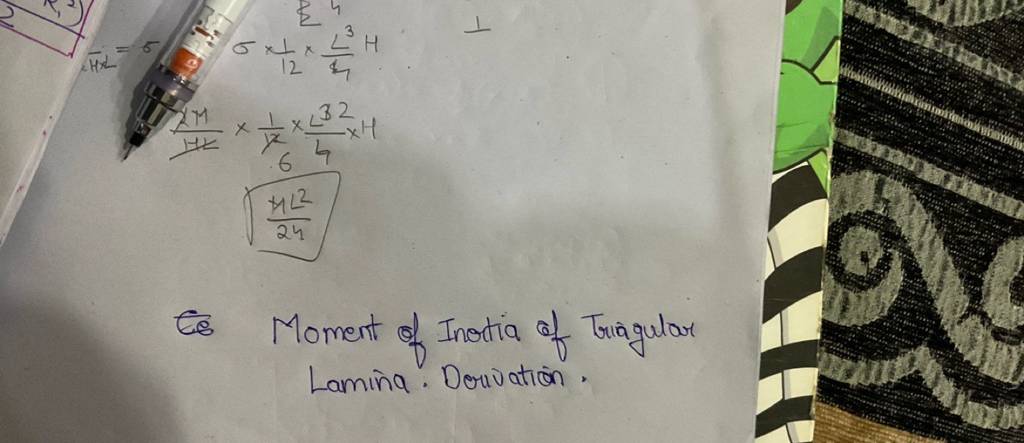 σ × 1/12 × L³/4 H
2M/HL × 1/12 × L³ 2/4 × H
6
ML²/24
Moment of Inertia of Triangular
Lamina . Derivation .